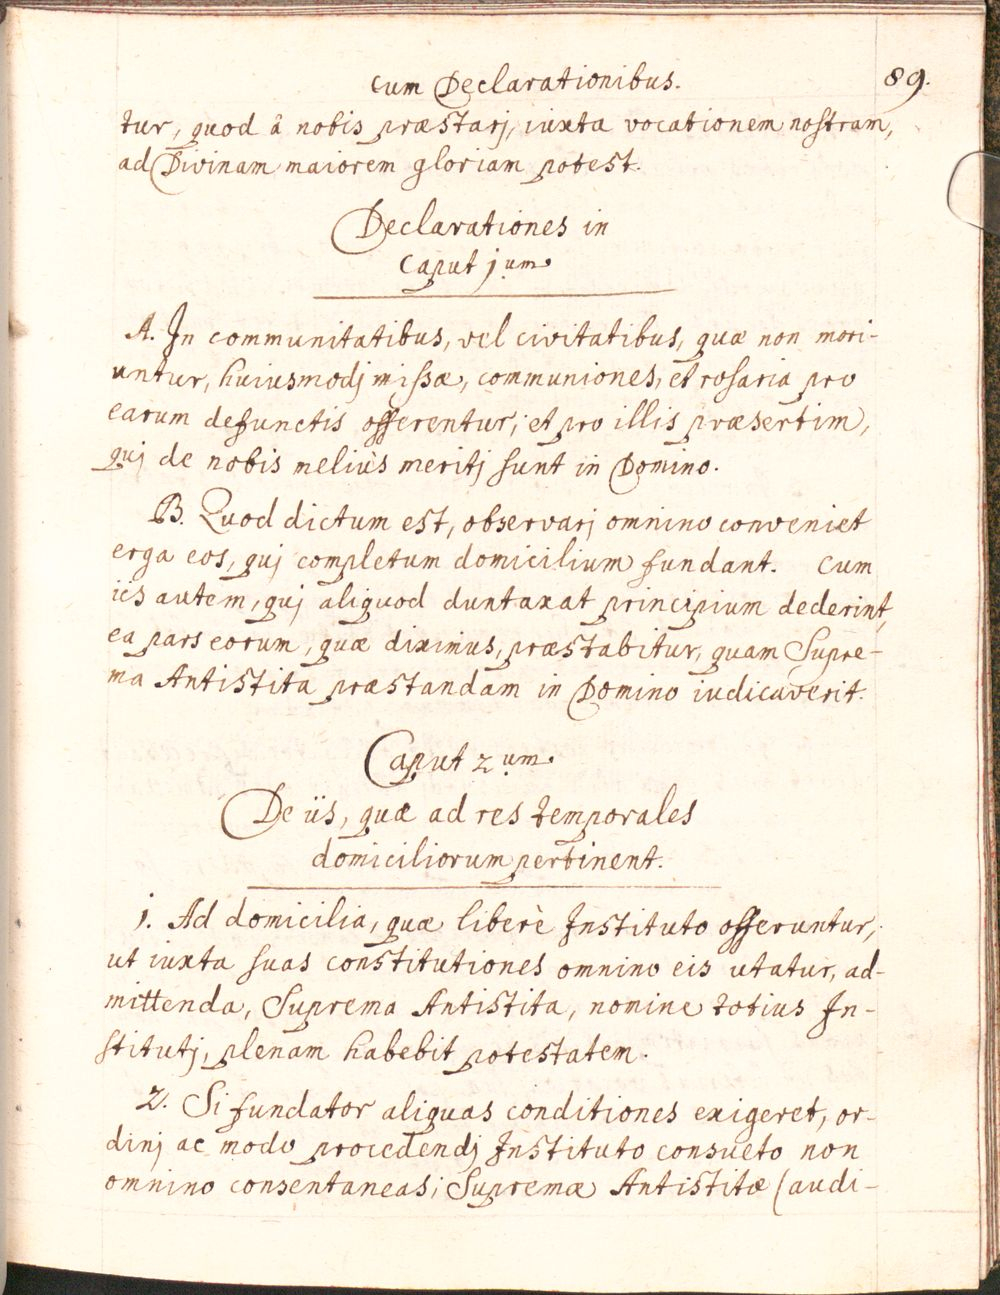 cum Declarationibus. 89.
tur, quod à nobis præstarj, iuxta vocationem nostram,
ad Divinam maiorem gloriam potest.
Declarationes in
Caput jum.
A. In communitatibus, vel civitatibus, quæ non mori-
untur, huiusmodj missæ, communiones, et rosaria pro
earum defunctis offerentur; et pro illis præsertim,
quj de nobis meliùs meritj sunt in Domino.
B. Quod dictum est, observarj omnino conveniet
erga eos, quj completum domicilium fundant. Cum
iis autem, quj aliquod duntaxat principium dederint,
ea pars eorum, quæ diximus, præstabitur, quam Supre-
ma Antistita præstandam in Domino iudicaverit.
Caput 2.um.
De iis, quæ ad res temporales
domiciliorum pertinent.
j. Ad domicilia, quæ liberè Instituto offeruntur,
ut iuxta suas constitutiones omnino eis utatur, ad-
mittenda, Suprema Antistita, nomine totius In-
stitutj, plenam habebit potestatem.
2. Si fundator aliquas conditiones exigeret, or-
dinj ac modo procedendj Instituto consueto non
omnino consentaneas; Supremæ Antistitæ (audi-